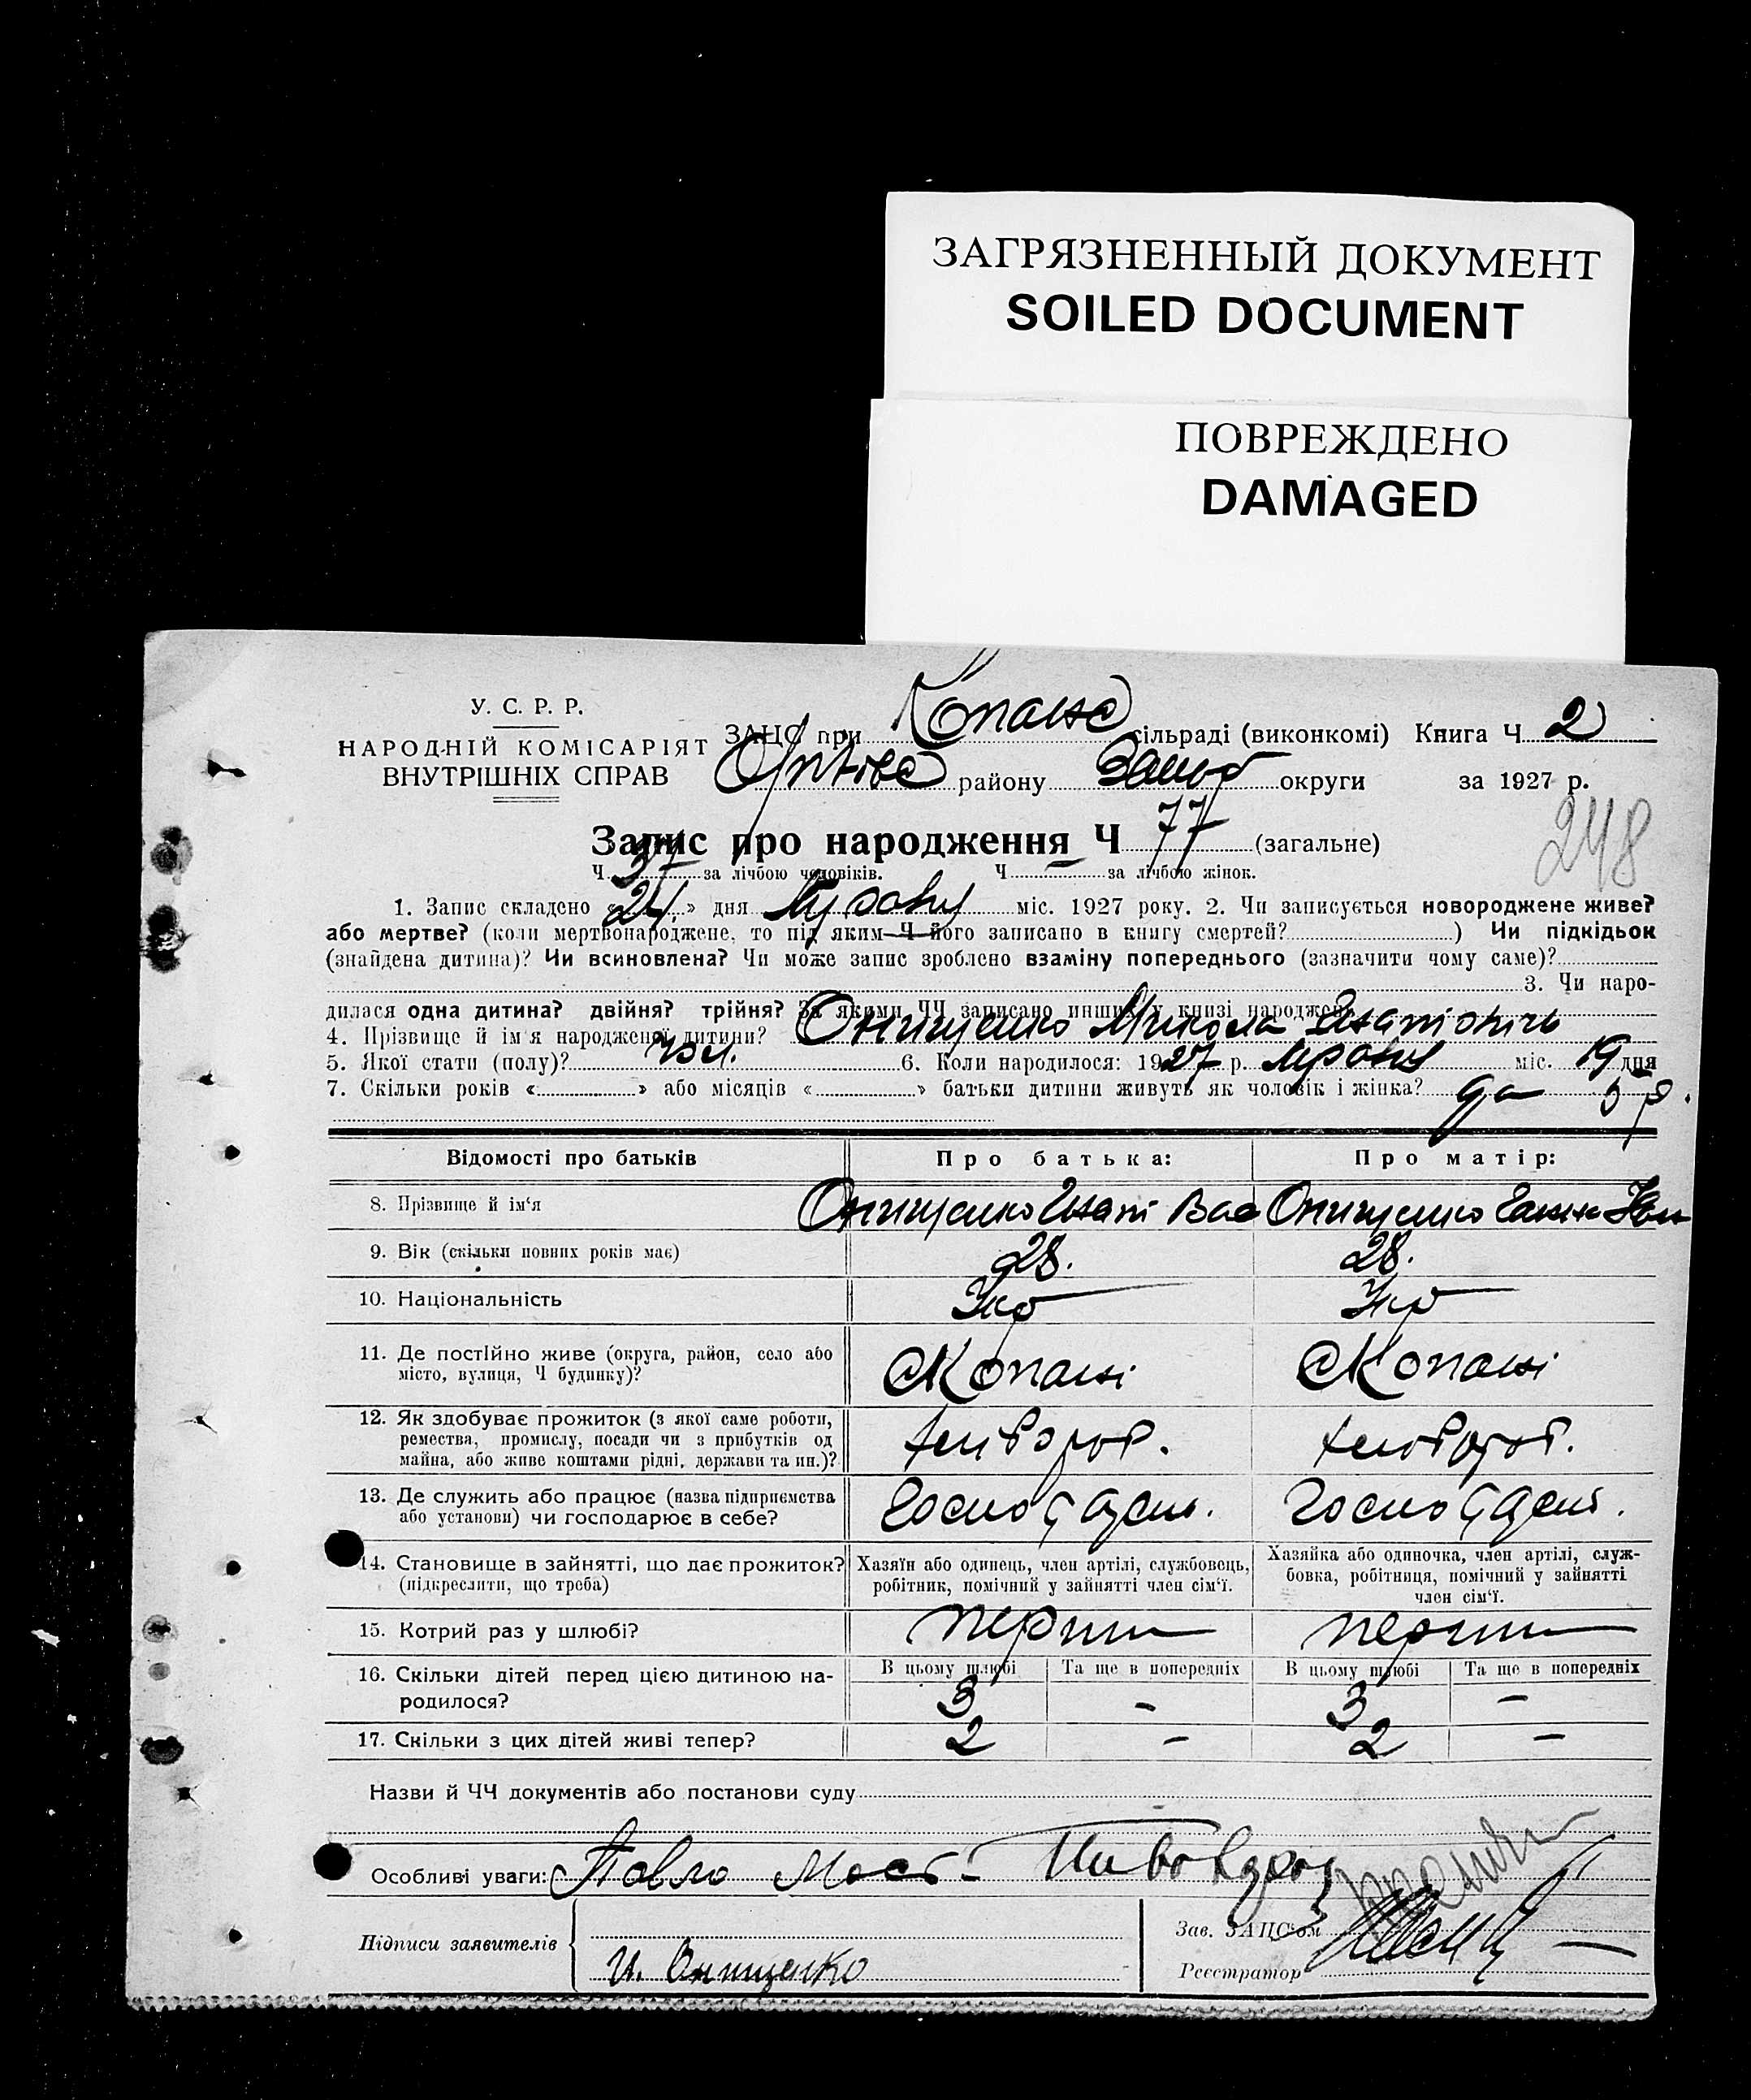 ЗАГРЯЗНЕННЫЙ ДОКУМЕНТ
SOILED DOCUMENT
ПОВРЕЖДЕНО
DAMAGED
У. С. Р. Р.
НАРОДНІЙ КОМІСАРІЯТ
ВНУТРІШНІХ СПРАВ
ЗАЦС при Копане сільраді (виконкомі) Книга Ч 2
району округи за 1927 р.
248
Запис про народження Ч 77 (загальне)
Ч 37 за лічбою чоловіків. Ч — за лічбою жінок.
1. Запис складено «24» дня міс. 1927 року. 2. Чи записується новороджене живе?
або мертве? (коли мертвонароджене, то під яким Ч його записано в книгу смертей? ) Чи підкідьок
(знайдена дитина)? Чи всиновлена? Чи може запис зроблено взаміну попереднього (зазначити чому саме)?
3. Чи наро-
дилася одна дитина? двійня? трійня? За якими ЧЧ записано инших у книзі народжень
4. Прізвище й ім'я народженої дитини? Онищенко Микола Гнатович
5. Якої стати (полу)? чол. 6. Коли народилося: 1927 р. міс. 19 дня
7. Скільки років « » або місяців « » батьки дитини живуть як чоловік і жінка? да 5 р.
Відомості про батьків Про батька: Про матір:
8. Прізвище й ім'я Онищенко Гнат Вас Онищенко
9. Вік (скільки повних років має) 28. 28.
10. Національність Укр Укр
11. Де постійно живе (округа, район, село або
місто, вулиця, Ч будинку)? с Копані с Копані
12. Як здобуває прожиток (з якої саме роботи,
ремества, промислу, посади чи з прибутків од
майна, або живе коштами рідні, держави та ин.)? хлибороб. хлибороб.
13. Де служить або працює (назва підприємства
або установи) чи господарює в себе?
14. Становище в зайнятті, що дає прожиток?
(підкреслити, що треба)
Хазяїн або одинець, член артілі, службовець,
робітник, помічний у зайнятті член сім'ї.
Хазяйка або одиночка, член артілі, служ-
бовка, робітниця, помічний у зайнятті
член сім'ї.
15. Котрий раз у шлюбі? перший перший
16. Скільки дітей перед цією дитиною на-
родилося?
В цьому шлюбі Та ще в попередніх В цьому шлюбі Та ще в попередніх
3 – 3 –
17. Скільки з цих дітей живі тепер? 2 – 2 –
Назви й ЧЧ документів або постанови суду
Особливі уваги: Павло
Підписи заявителів
И. Онищенко
Зав. ЗАЦС'ом
Реєстратор